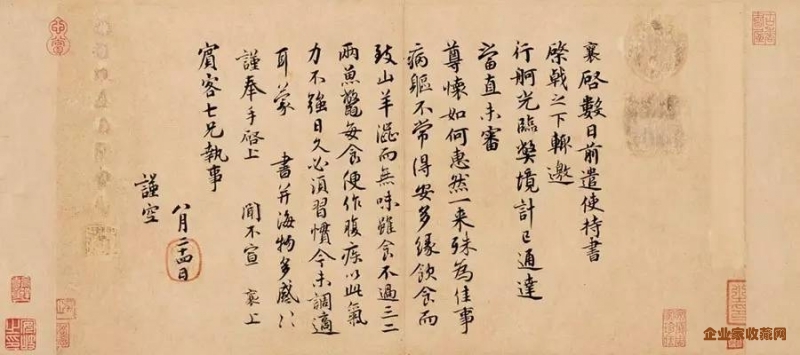 襄啓數日前遣使持書
棨戟之下輙邀
行舸光臨弊境計已通達
當直未審
尊懷如何惠然一来殊為佳事
病軀不常得安多縁飲食而
致山羊澀而無味雖食不過三二
兩魚鼈每食便作腹疾以此氣
力不強日久必須習慣今未調適
耳蒙 書并海物多感〻
謹奉手啓上 聞不宣 襄上
賓客七兄執事
八月廿四日
謹空
企业家收藏网